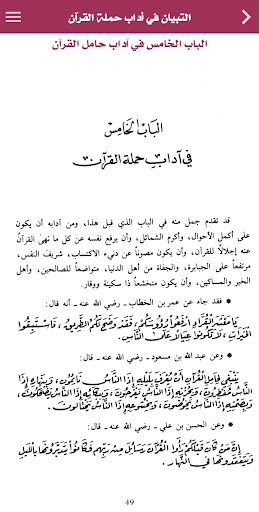 التبيان في آداب حملة القرآن
الباب الخامس في آداب حامل القرآن
الباب الخامس
في آداب حملة القرآن
قد تقدم جمل منه في الباب الذي قبل هذا، ومن آدابه أن يكون
على أكمل الأحوال، وأكرم الشمائل، وأن يرفع نفسه عن كل ما نهى القرآن
عنه إجلالاً للقرآن، وأن يكون مصوناً عن دنيء الاكتساب، شريف النفس،
مرتفعاً على الجبابرة، والجفاة من أهل الدنيا، متواضعاً للصالحين، وأهل
الخير والمساكين، وأن يكون متخشعاً ذا سكينة ووقار.
• فقد جاء عن عمر بن الخطاب - رضي الله عنه - أنه قال:
يا معشر القراء ارفعوا رؤوسكم، فقد وضح لكم الطريق، فاستبقوا
الخيرات، لا تكونوا عيالاً على الناس.
• وعن عبد الله بن مسعود - رضي الله عنه - قال:
ينبغي لحامل القرآن أن يعرف بليله إذا الناس نائمون، وبنهاره إذا
الناس مفطرون، وبحزنه إذا الناس يفرحون، وببكائه إذا الناس يضحكون،
وبصمته إذا الناس يخوضون، وبخشوعه إذا الناس يختالون.
• وعن الحسن بن علي - رضي الله عنه - قال:
إن من كان قبلكم رأوا القرآن رسائل من ربهم فكانوا يتدبرونها بالليل
ويتفقدونها في النهار.
49